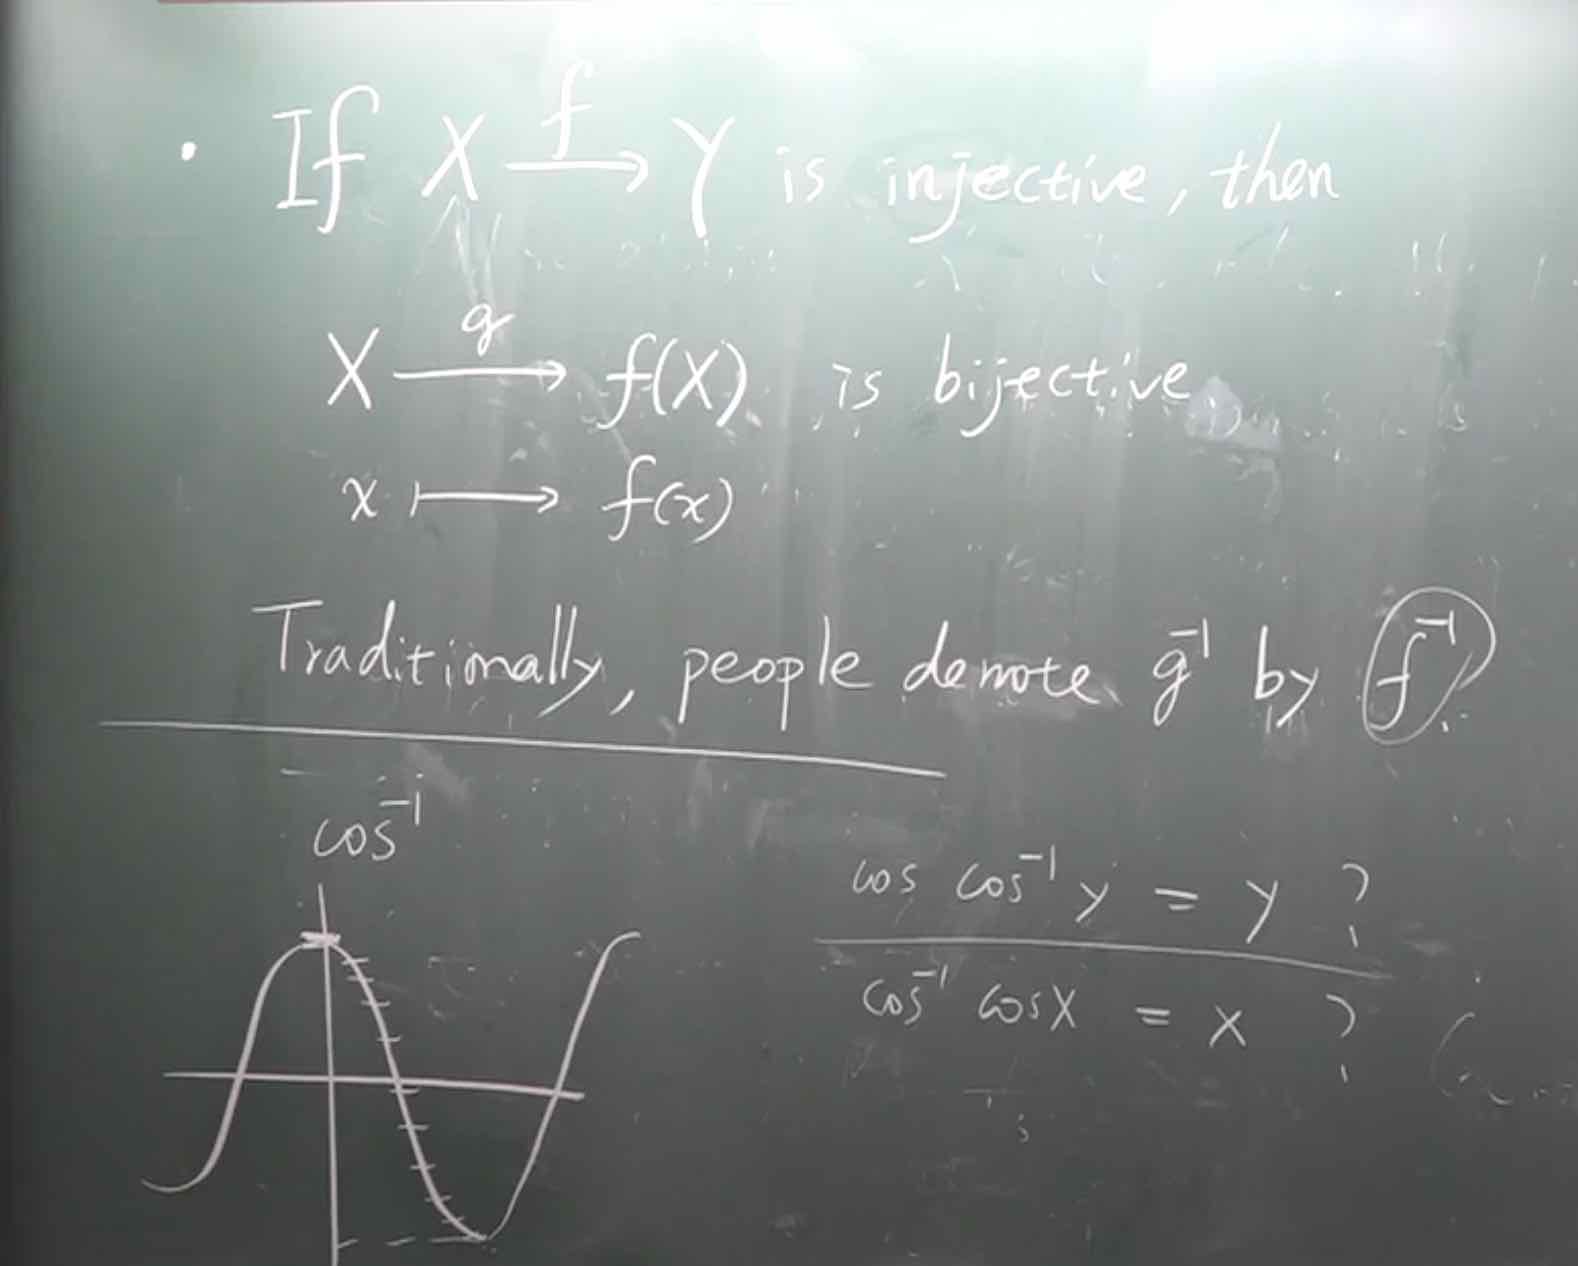 · If X —f→ Y is injective, then
X —g→ f(X) is bijective
x ⟼ f(x)
Traditionally, people denote g⁻¹ by f⁻¹.
cos⁻¹
cos cos⁻¹ y = y ?
cos⁻¹ cos x = x ?